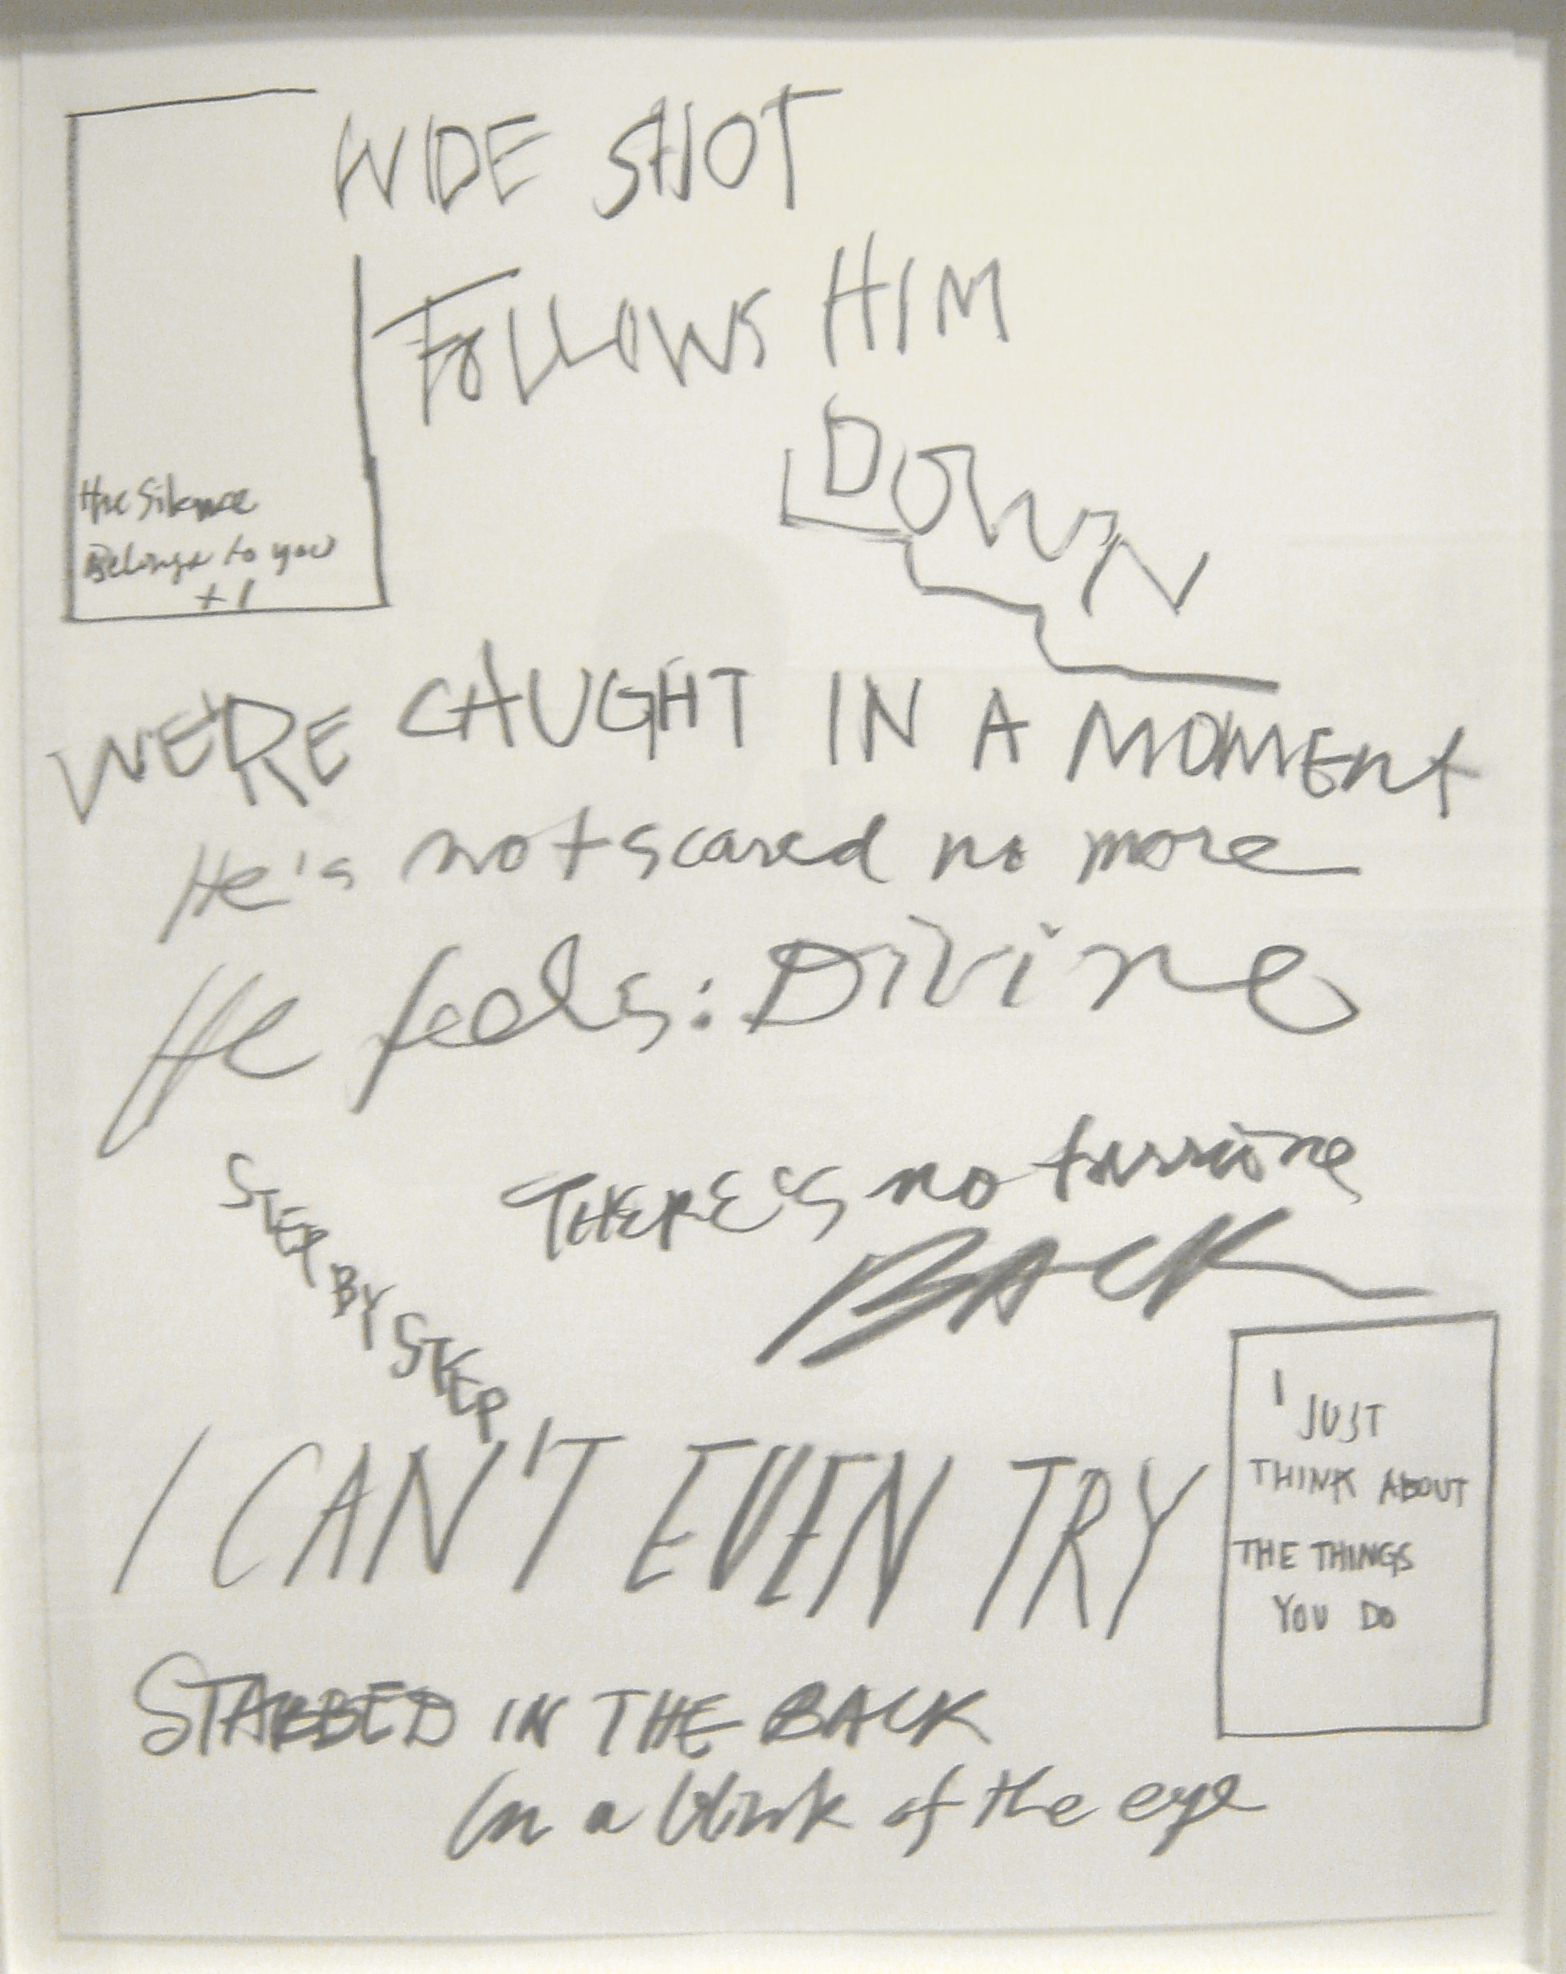 WIDE SHOT
FOLLOWS HIM
DOWN
the Silence
Belongs to you
+1
WE'RE CAUGHT IN A MOMENT
He's not scared no more
He feels: Divine
STEP BY STEP
THERE'S no turning
BACK
I CAN'T EVEN TRY
I JUST
THINK ABOUT
THE THINGS
YOU DO
STABBED IN THE BACK
In a blink of the eye